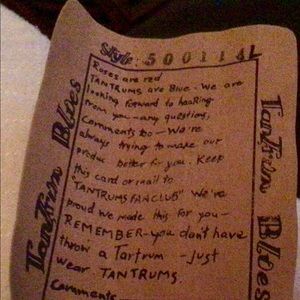 Style: 500114L
Roses are red
TANTRUMS are Blue. We are
looking forward to hearing
from you - any questions,
comments too - We're
always trying to make our
produc better for you. Keep
this card or mail to
"TANTRUMS FAN CLUB" We've
proud we made this for you -
REMEMBER - you don't have
throw a Tartrum - just
wear TANTRUMS.
Comments
Tantrum Blues
Tantrum Blues